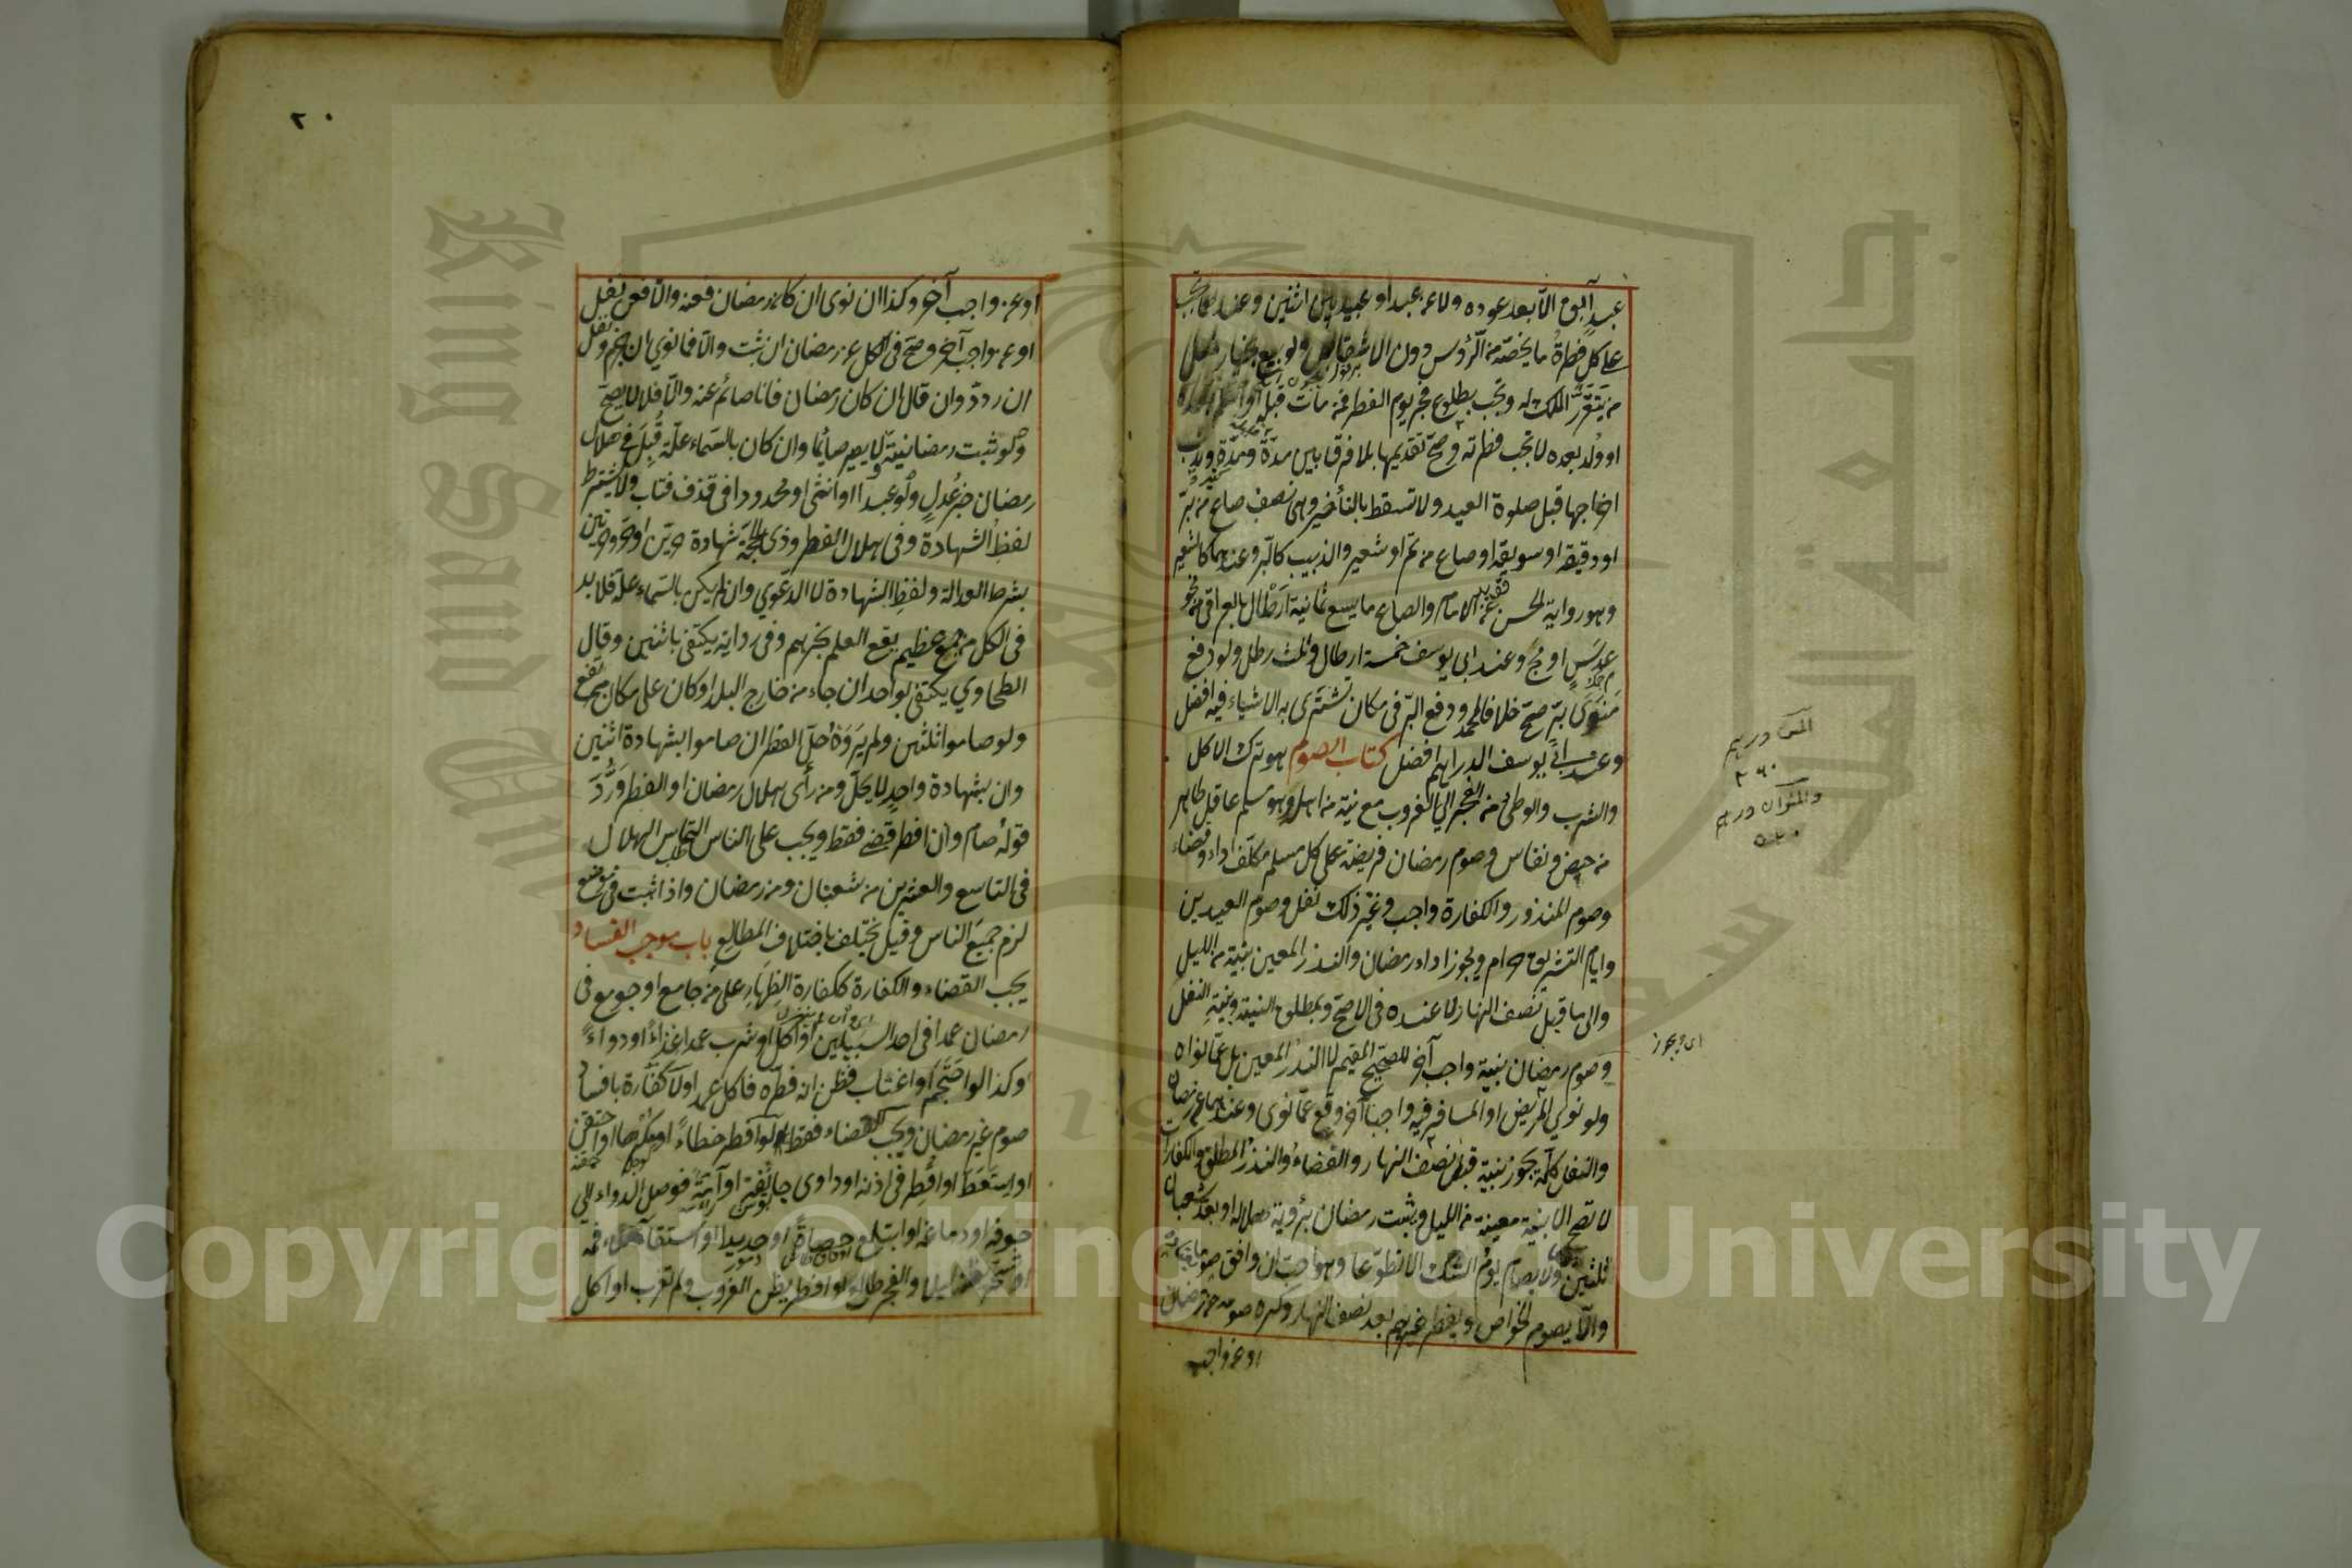 عبد آبق الا بعد عوده ولا عن عبد او عبيد بين اثنين وعندهما تجب
على كل فطرة ما يخصه من الرؤس دون الاشقاص ولو بيع بخيار فعلى
من يتقرر الملك له وتجب بطلوع فجر يوم الفطر فمن مات قبله او اسلم
او ولد بعده لا تجب فطرته وصح تقديمها بلا فرق بين مدة ومدة وندب
اخراجها قبل صلوة العيد ولا تسقط بالتأخير وهى نصف صاع من بر
او دقيقه او سويقه او صاع من تمر او شعير والزبيب كالبر وعندهما كالشعير
وهو رواية الحسن عن الامام والصاع ما يسع ثمانية ارطال بالعراقى من نحو
عدس او مج وعند ابى يوسف خمسة ارطال وثلث رطل ولو دفع
منوى بر صح خلافا لمحمد ودفع البر فى مكان تشترى به الاشياء فيه افضل
وعند ابى يوسف الدراهم افضل كتاب الصوم هو ترك الاكل
والشرب والوطئ من الفجر الى الغروب مع نية من اهله وهو مسلم عاقل طاهر
من حيض ونفاس وصوم رمضان فريضة على كل مسلم مكلف اداء وقضاء
وصوم المنذور والكفارة واجب وغير ذلك نفل وصوم العيدين
وايام التشريق حرام ويجوز اداء رمضان والنذر المعين بنية من الليل
والى ما قبل نصف النهار لا عنده فى الاصح وبمطلق النية وبنية النفل
وصوم رمضان بنية واجب آخر للصحيح المقيم لا النذر المعين بل عما نواه
ولو نوى المريض او المسافر فيه واجبا آخر وقع عما نوى وعندهما عن رمضان
والنفل كله يجوز بنية قبل نصف النهار والقضاء والنذر المطلق والكفارات
لا تصح الا بنية معينة من الليل ويثبت رمضان برؤية هلاله او بعد شعبان
ثلثين ولا يصام يوم الشك الا تطوعا وهو احب ان وافق صوما يعتاده
والا يصوم الخواص ويفطر غيرهم بعد نصف النهار وكره صومه عن رمضان
او عن واجب
المن درهم
٢٦٠
والمنوان درهم
٥٢٠
اى ويجوز
٢٠
او عن واجب آخر وكذا ان نوى ان كان رمضان فعنه والا فعن نفل
او عن واجب آخر وصح فى الكل عن رمضان ان ثبت والا فما نوى ان جزم ونفل
ان ردد وان قال ان كان رمضان فانا صائم عنه والا فلا لا يصح
ولو ثبت رمضانيته لا يصير صائما وان كان بالسماء علة قبل فى هلال
رمضان خبر عدل ولو عبدا او انثى او محدودا فى قذف فتاب ولا يشترط
لفظ الشهادة وفى هلال الفطر وذى الحجة شهادة حرين او حر وحرتين
بشرط العدالة ولفظ الشهادة لا الدعوى وان لم يكن بالسماء علة فلا بد
فى الكل من جمع عظيم يقع العلم بخبرهم وفى رواية يكتفى باثنين وقال
الطحاوي يكتفى بواحد ان جاء من خارج البلد او كان على مكان مرتفع
ولو صاموا ثلثين ولم يروه حل الفطر ان صاموا بشهادة اثنين
وان بشهادة واحد لا يحل ومن رأى هلال رمضان او الفطر ورد
قوله صام وان افطر قضى فقط ويجب على الناس التماس الهلال
فى التاسع والعشرين من شعبان ومن رمضان واذا ثبت فى موضع
لزم جميع الناس وقيل يختلف باختلاف المطالع باب موجب الفساد
يجب القضاء والكفارة ككفارة الظهار على من جامع او جومع فى
رمضان عمدا فى احد السبيلين او اكل او شرب عمدا غذاء او دواء
وكذا لو احتجم او اغتاب فظن انه فطره فاكل عمدا ولا كفارة بافساد
صوم غير رمضان ويجب القضاء فقط لو افطر خطاء او مكرها او احتقن
او استعط او اقطر فى اذنه او داوى جائفة او آمة فوصل الدواء الى
جوفه او دماغه او ابتلع حصاة او حديدا او استقاء ملء فمه
او تسحر يظنه ليلا والفجر طالع او افطر يظن الغروب ولم تغرب او اكل